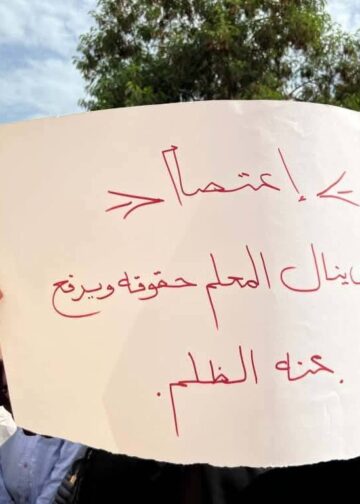 << إعتصام >>
ينال المعلم حقوقه ويرفع
عنه الظلم.